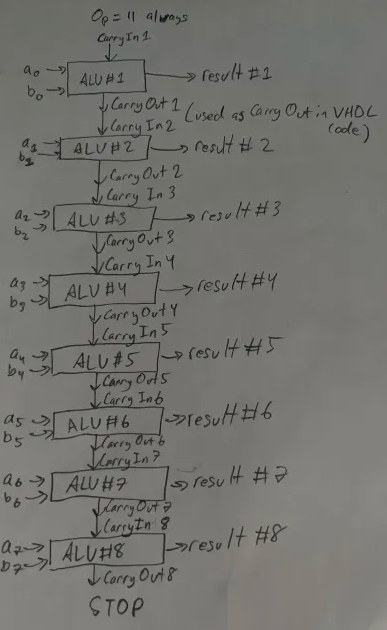 Op = 11 always
Carry In 1
a0 → ALU#1 → result #1
b0
Carry Out 1 (used as Carry Out in VHDL
Carry In 2 code)
a1 → ALU#2 → result #2
b1
Carry Out 2
Carry In 3
a2 → ALU#3 → result #3
b2
Carry Out 3
Carry In 4
a3 → ALU#4 → result #4
b3
Carry Out 4
Carry In 5
a4 → ALU#5 → result #5
b4
Carry Out 5
Carry In 6
a5 → ALU#6 → result #6
b5
Carry Out 6
Carry In 7
a6 → ALU#7 → result #7
b6
Carry Out 7
Carry In 8
a7 → ALU#8 → result #8
b7
Carry Out 8
STOP